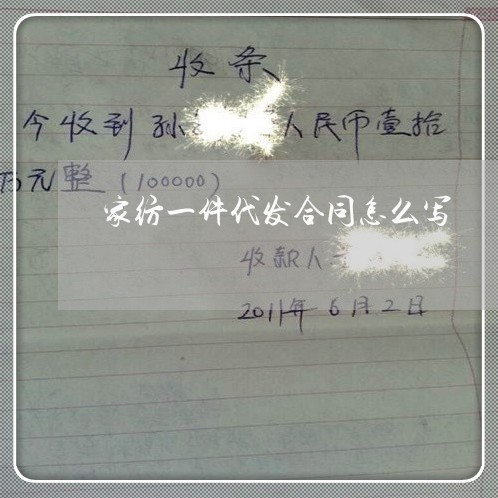 收条
今收到孙 人民币壹拾
万元整(100000)
家纺一件代发合同怎么写
收款人
2011年6月2日